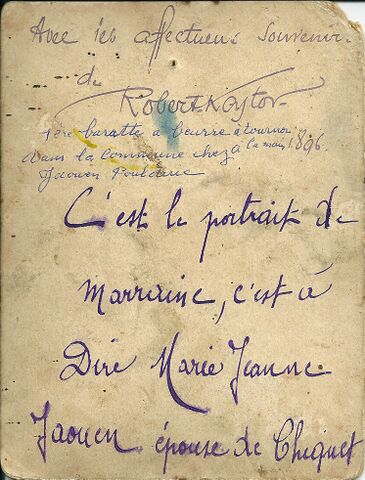 Avec les affectueux souvenirs
de
Robert Kaytor
1ère baratte à beurre à tourner
dans la commune chez à la main 1896
Jaouen
C'est le portrait de
Marraine, c'est à
Dire Marie Jeanne
Jaouen épouse de Cheguet